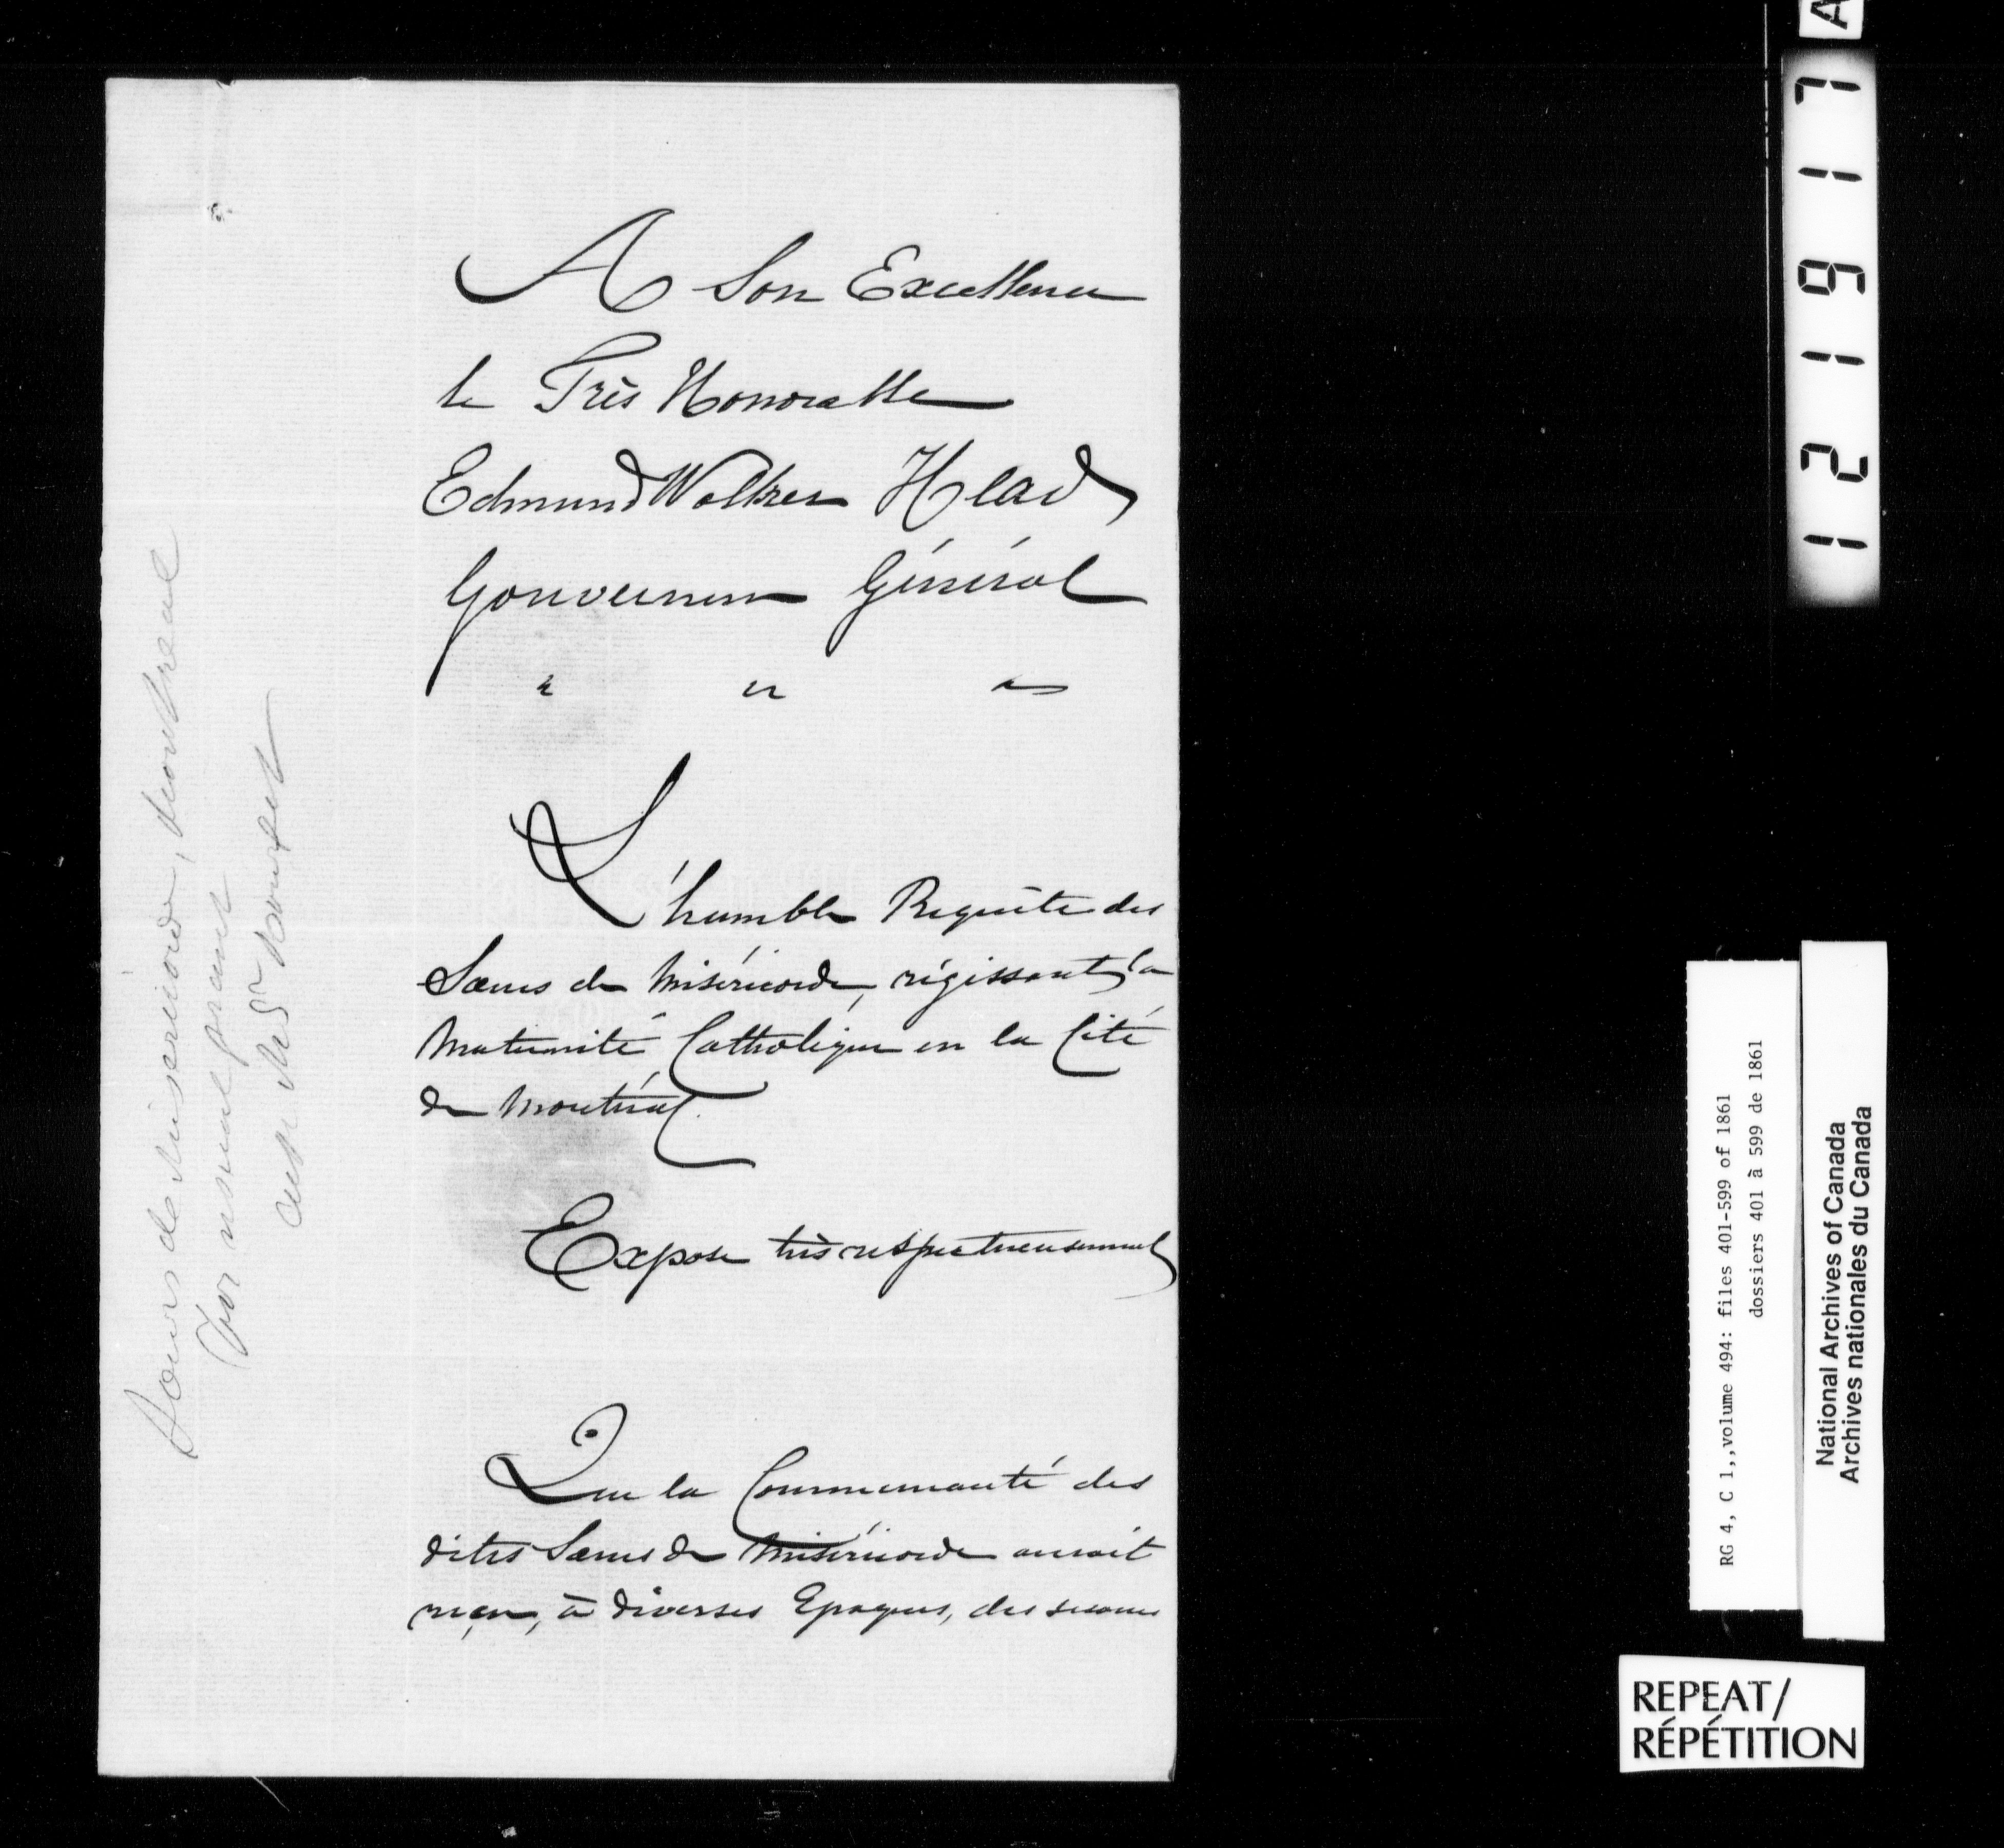 A Son Excellence
le Très Honorable
Edmund Walker Head
Gouverneur Général
" " "
L'humble Requête des
Sœurs de Miséricorde, régissant la
Maternité Catholique en la Cité
de Montréal.
Expose très respectueusement
Que la Communauté des
dites Sœurs de Miséricorde auroit
reçu, à diverses Epoques, des secours
Soeurs de Misericorde, Montreal
for usual grant
121917
RG 4, C 1,,volume 494: files 401-599 of 1861
dossiers 401 à 599 de 1861
National Archives of Canada
Archives nationales du Canada
REPEAT/
RÉPÉTITION